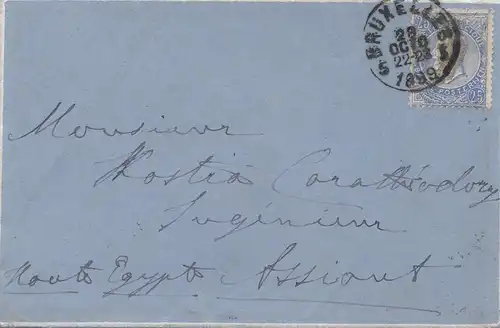 BRUXELLES
29
OCTO
22-23
1899
5 5
Monsieur
Kostia Carathéodory
Ingénieur
Haute Egypte Assiout